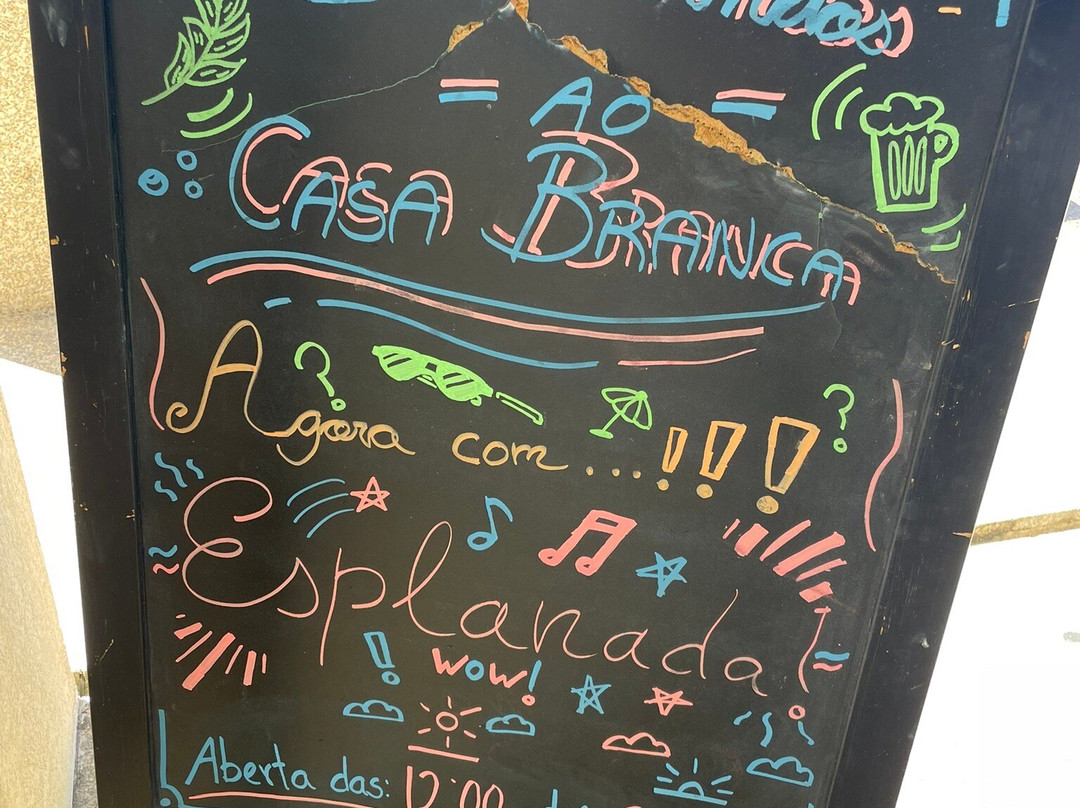 AO
CASA BRANCA
Agora com...!!!
Esplanada
! wow!
Aberta das: 12:00